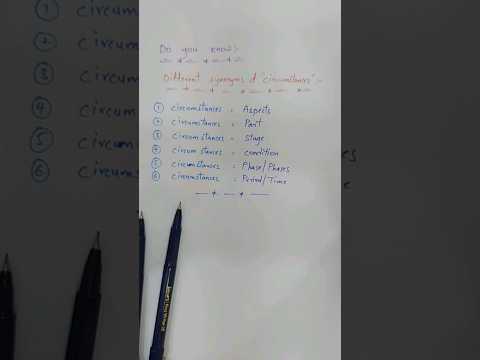 Do you know:-
Different synonyms of "circumstances":-
① circumstances = Aspects
② circumstances = Part
③ circumstances = Stage
④ circumstances = condition
⑤ circumstances = Phase/Phases
⑥ circumstances = Period/Time